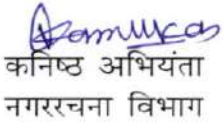 कनिष्ठ अभियंता
नगररचना विभाग